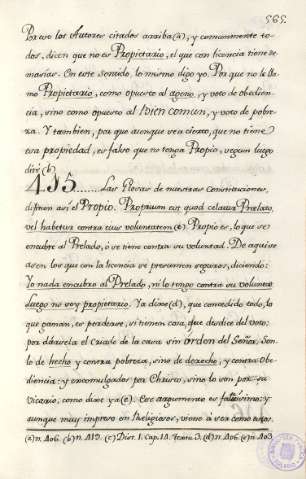 565.
Por esto los Autores citados arriba (a), y comunmente to-
dos, dicen que no es Propietario, el que con licencia tiene de-
masias. En este sentido, lo mismo digo yo. Por que no le lla-
mo Propietario, como opuesto al ageno, y voto de obedien-
cia, sino como opuesto al bien comun, y voto de pobre-
za. Y tambien, por que aunque sea cierto, que no tiene
esa propiedad, es falso que no tenga Propio, segun luego
diré (b)
415....... Las Glosas de nuestras Constituciones,
difinen asi el Propio. Proprium est quod celatur Prælato,
vel habetur contra eius voluntatem (c). Propio es, lo que se
encubre al Prelado, ó se tiene contra su voluntad. De aqui se
asen los que con la licencia se presumen seguros, diciendo:
Yo nada encubro al Prelado, ni lo tengo contra su voluntad
luego no soy propietario. Ya dixe (d), que concedido todo, lo
que ganan, es perderse, si tienen cosa, que desdice del voto:
por di el Criado de la casa sin orden del Señor. Son-
lo de hecho y contra pobreza, sino de derecho, y contra Obe-
diencia: y excomulgados por Christo, sino lo son por su
Vicario, como dixe ya (e). Este argumento es y
aunque muy impreso en Religiosos, viene á ser como
(a) n. 406. (b) n. 419. (c) Dist. 1. Cap. 10. Textu 3. (d) n. 406. (e) n. 403.